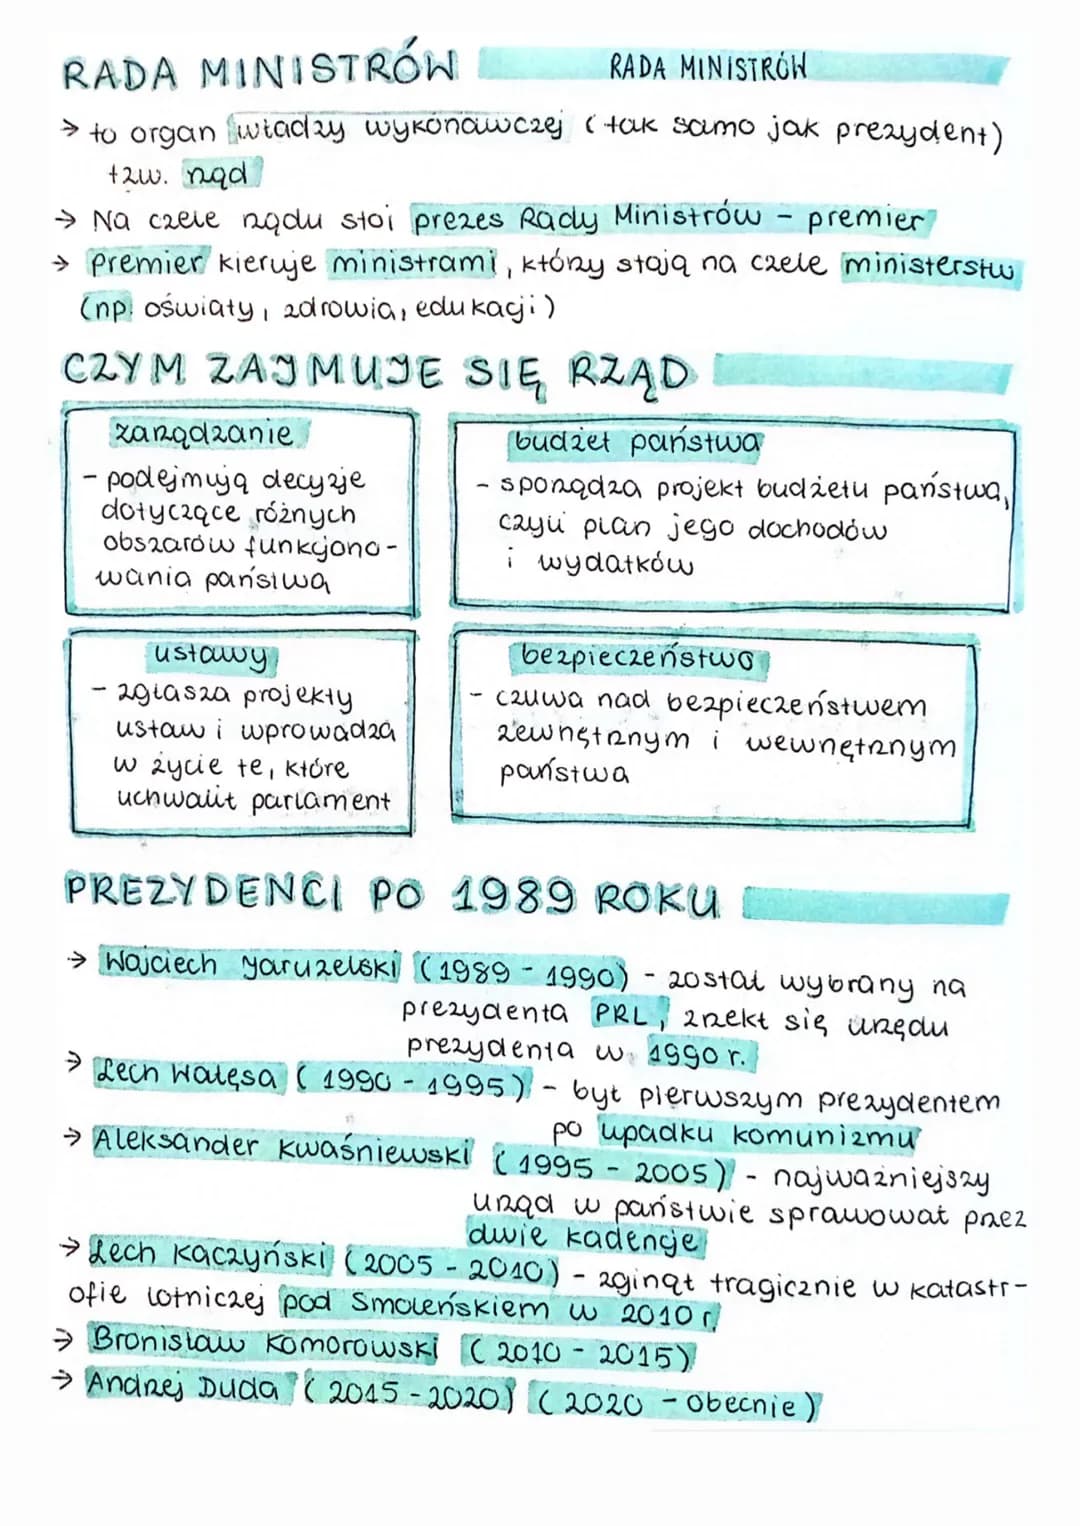 RADA MINISTRÓW RADA MINISTRÓW
→ to organ władzy wykonawczej (tak samo jak prezydent)
tzw. rząd
→ Na czele rządu stoi prezes Rady Ministrów - premier
→ Premier kieruje ministrami, którzy stają na czele ministerstw
(np. oświaty, zdrowia, edukacji)
CZYM ZAJMUJE SIĘ RZĄD
zarządzanie
- podejmują decyzje
dotyczące różnych
obszarów funkcjono-
wania państwa
budżet państwa
- sporządza projekt budżetu państwa,
czyli plan jego dochodów
i wydatków
ustawy
- zgłasza projekty
ustaw i wprowadza
w życie te, które
uchwalił parlament
bezpieczeństwo
- czuwa nad bezpieczeństwem
zewnętrznym i wewnętrznym
państwa
PREZYDENCI PO 1989 ROKU
→ Wojciech Jaruzelski (1989 - 1990) - został wybrany na
prezydenta PRL, zrzekł się urzędu
prezydenta w 1990 r.
→ Lech Wałęsa (1990 - 1995) - był pierwszym prezydentem
po upadku komunizmu
→ Aleksander Kwaśniewski (1995 - 2005) - najważniejszy
urząd w państwie sprawował przez
dwie kadencje
→ Lech Kaczyński (2005 - 2010) - zginął tragicznie w katastr-
ofie lotniczej pod Smoleńskiem w 2010 r.
→ Bronisław Komorowski (2010 - 2015)
→ Andrzej Duda (2015 - 2020) (2020 - obecnie)